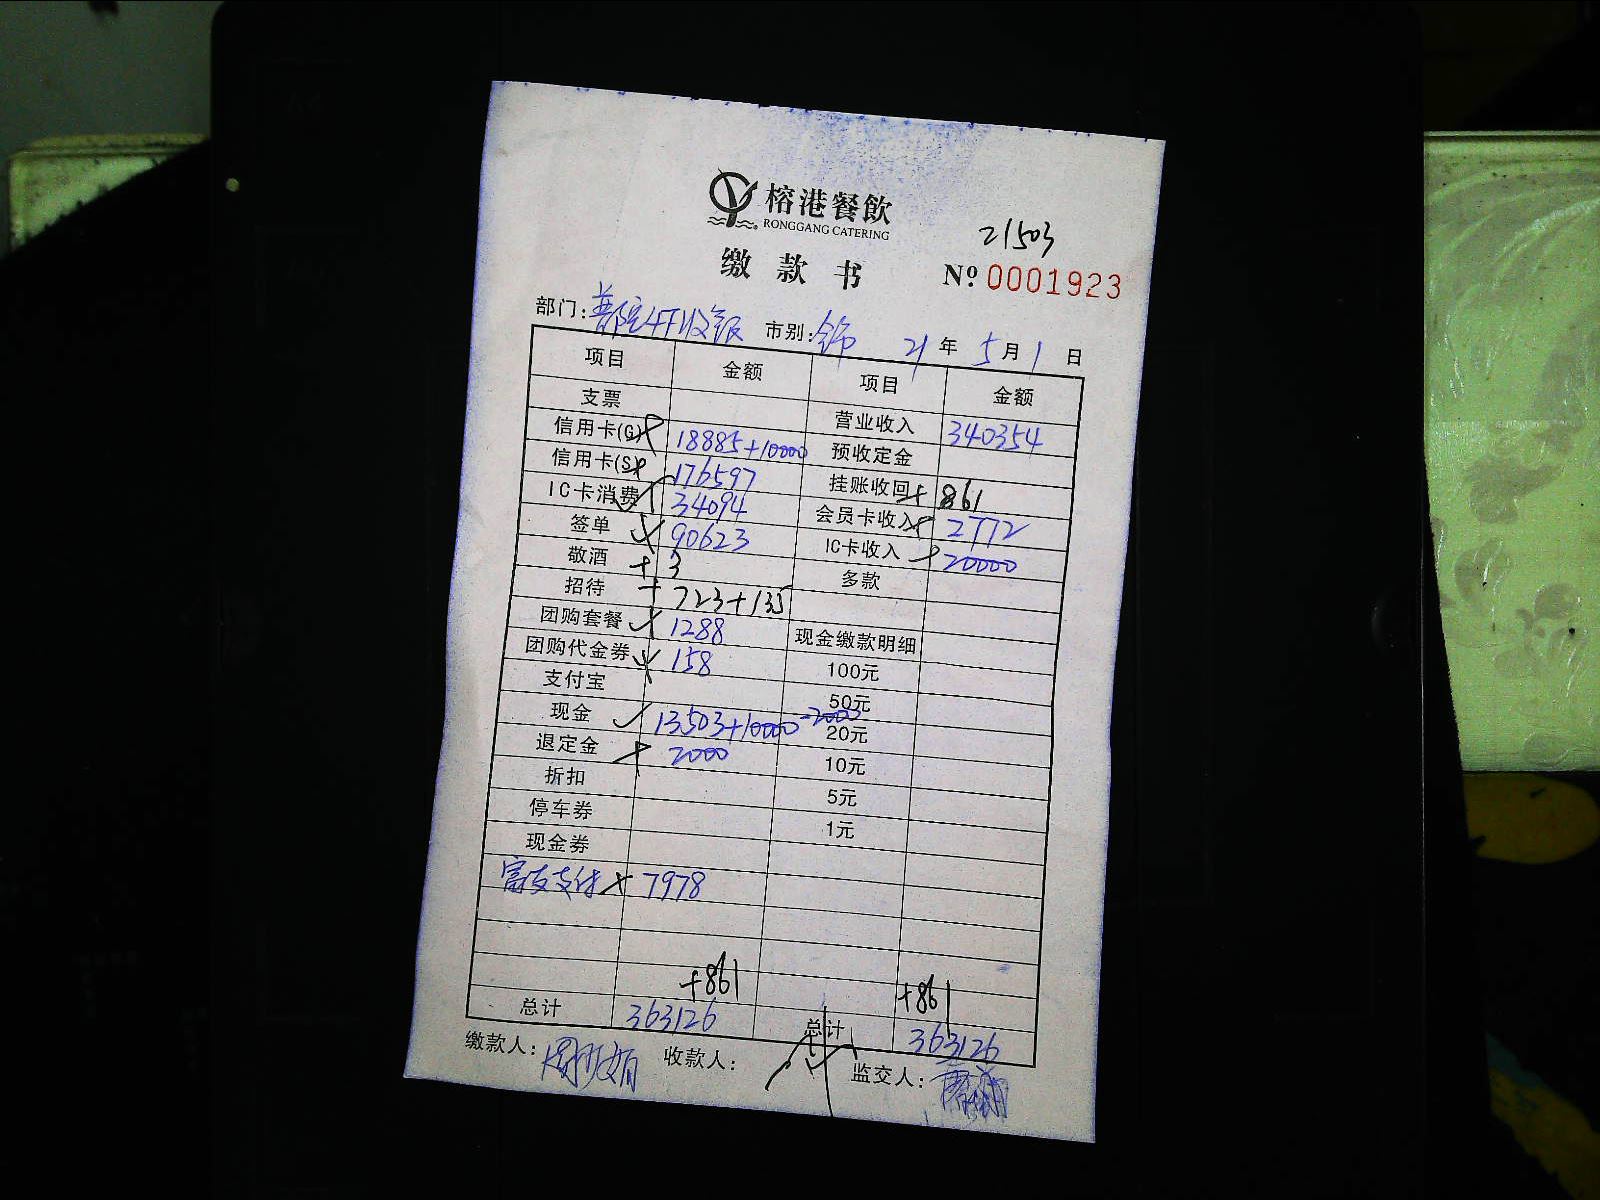 榕港餐飲
RONGGANG CATERING
21503
缴款书 Nº 0001923
部门: 收银 市别: 21年5月1日
项目 金额 项目 金额
支票 营业收入 340354
信用卡(G) 18885+10000 预收定金
信用卡(S) 176597 挂账收回 +861
IC卡消费 34094 会员卡收入 2772
签单 90623 IC卡收入 20000
敬酒 +3 多款
招待 +723+135
团购套餐 1288 现金缴款明细
团购代金券 158 100元
支付宝 50元
现金 13503+10000-2000 20元
退定金 2000 10元
折扣 5元
停车券 1元
现金券
富友支付 7978
+861 +861
总计 363126 总计 363126
缴款人: 收款人: 监交人: